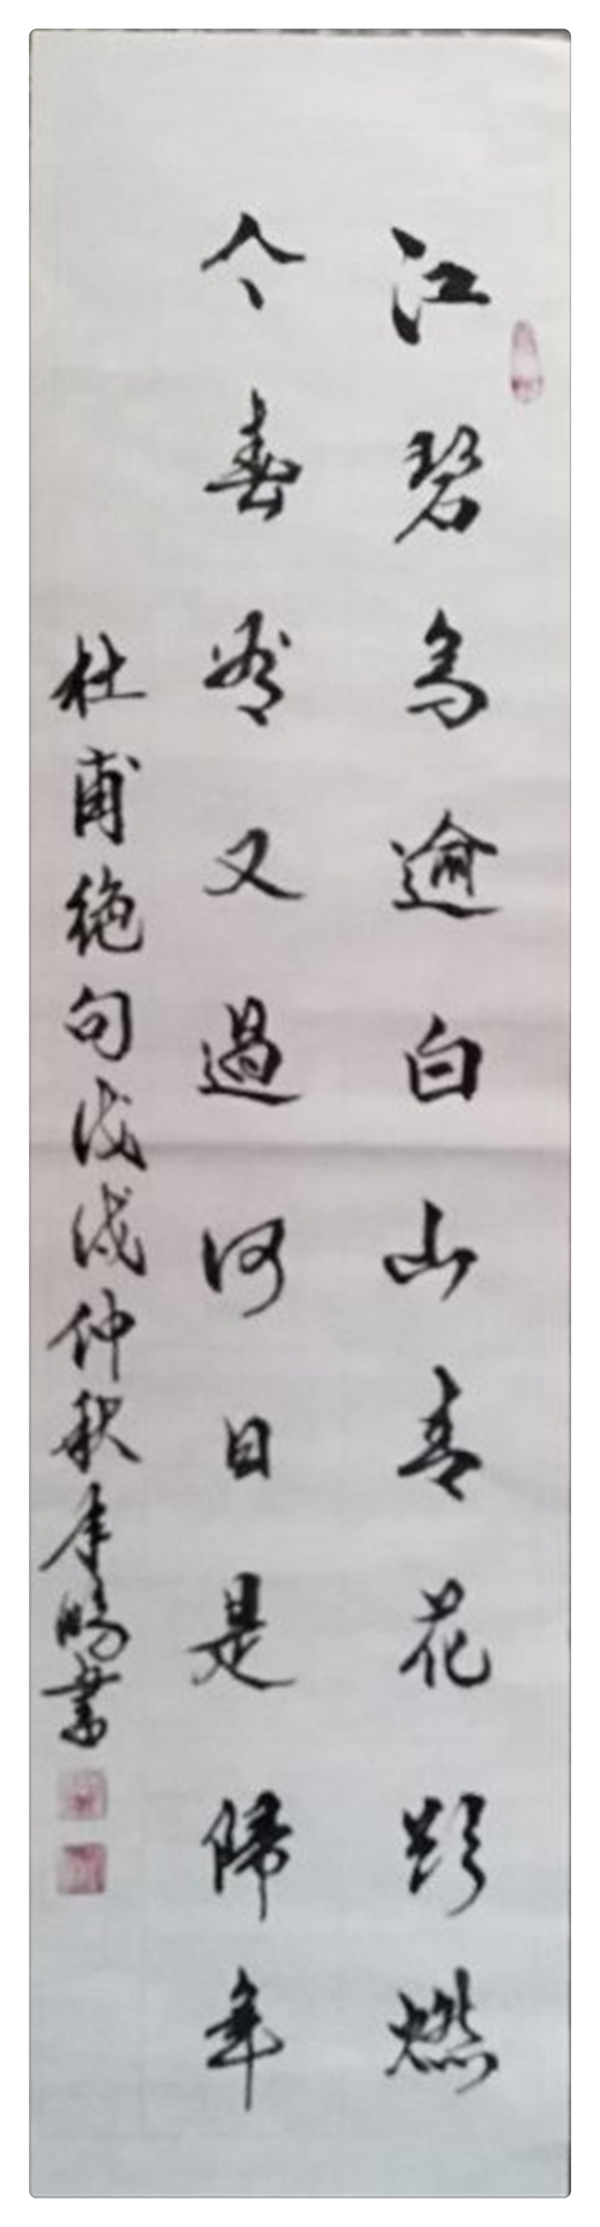 江碧鸟逾白山青花欲燃
今春看又過何日是歸年
杜甫絶句戊戌仲秋李